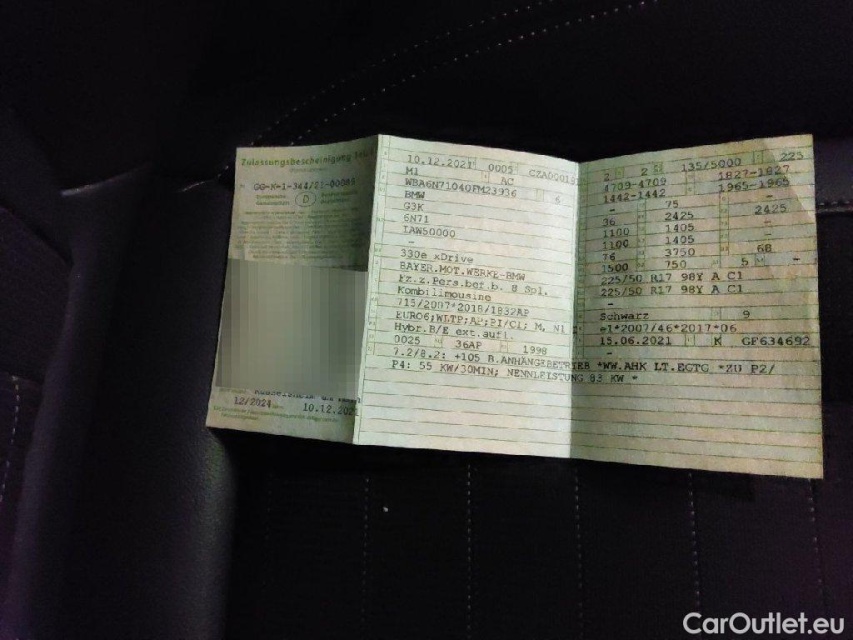 Zulassungsbescheinigung Teil
D
12/2024
10.12.2021
10.12.2021 0005
M1 AC
WBA6N71040FM23936 6
BMW
G3K
6N71
IAW50000
–
330e xDrive
BAYER.MOT.WERKE-BMW
Fz.z.Pers.bef.b. 8 Spl.
Kombilimousine
715/2007*2018/1832AP
EURO6;WLTP;AP;PI/CI; M, N1
Hybr.B/E ext.aufl.
0025 36AP 1998
7.2/8.2: +105 B.ANHÄNGEBETRIEB *WW.AHK LT.EGTG *ZU P2/
P4: 55 KW/30MIN; NENNLEISTUNG 83 KW *
2 2 135/5000 225
4709-4709 1827-1827
1442-1442 1965-1965
75
36 2425 2425
1100 1405
1100 1405
76 3750 68
1500 750 5 –
225/50 R17 98Y A C1
225/50 R17 98Y A C1
–
Schwarz 9
e1*2007/46*2017*06
15.06.2021 K GF634692
–
CarOutlet.eu